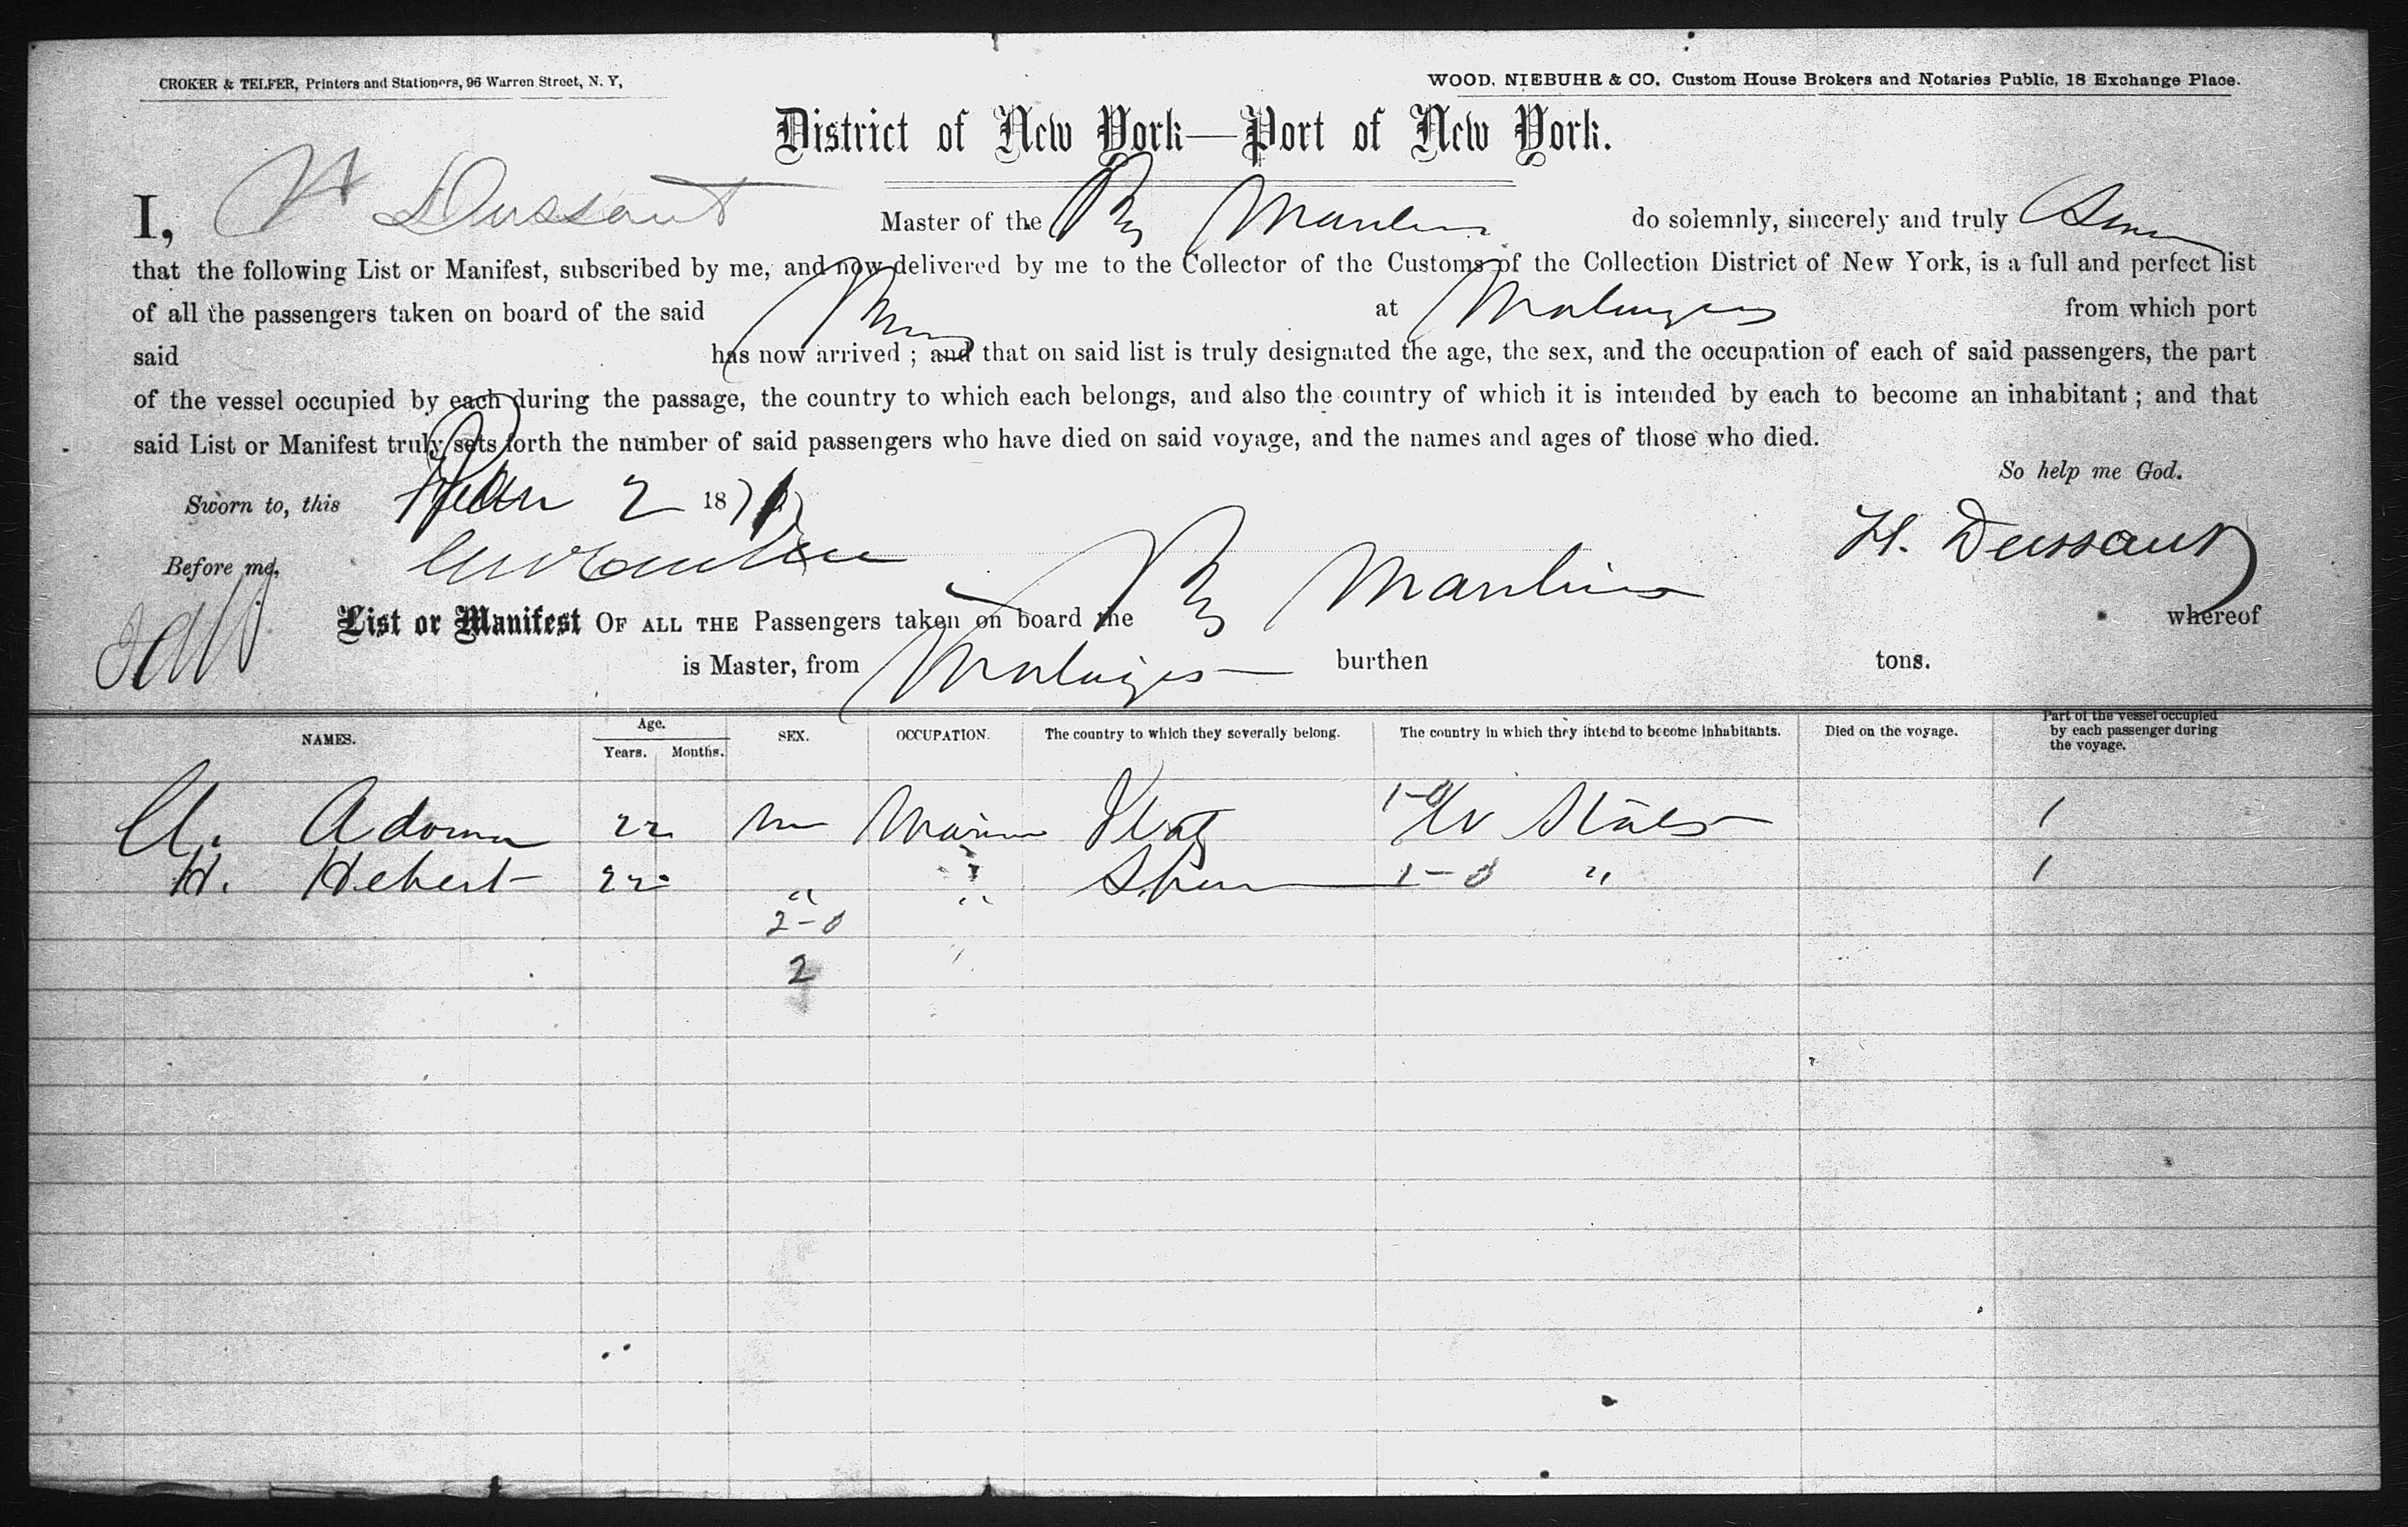 CROKER & TELFER, Printers and Stationers, 96 Warren Street, N. Y,
WOOD, NIEBUHR & CO. Custom House Brokers and Notaries Public, 18 Exchange Place.
District of New York—Port of New York.
I, H Dussaut Master of the do solemnly, sincerely and truly Swear
that the following List or Manifest, subscribed by me, and now delivered by me to the Collector of the Customs of the Collection District of New York, is a full and perfect list
of all the passengers taken on board of the said at from which port
said has now arrived ; and that on said list is truly designated the age, the sex, and the occupation of each of said passengers, the part
of the vessel occupied by each during the passage, the country to which each belongs, and also the country of which it is intended by each to become an inhabitant ; and that
said List or Manifest truly sets forth the number of said passengers who have died on said voyage, and the names and ages of those who died.
So help me God.
Sworn to, this 2 1871
H. Dussaut
Before me,
List or Manifest OF ALL THE Passengers taken on board the whereof
is Master, from burthen tons.
NAMES. Age. Years. Months. SEX. OCCUPATION. The country to which they severally belong. The country in which they intend to become inhabitants. Died on the voyage. Part of the vessel occupied by each passenger during the voyage.
A. 22 m 1-0 States 1
H. Hebert 22 " " 1-0 " 1
2-0
2